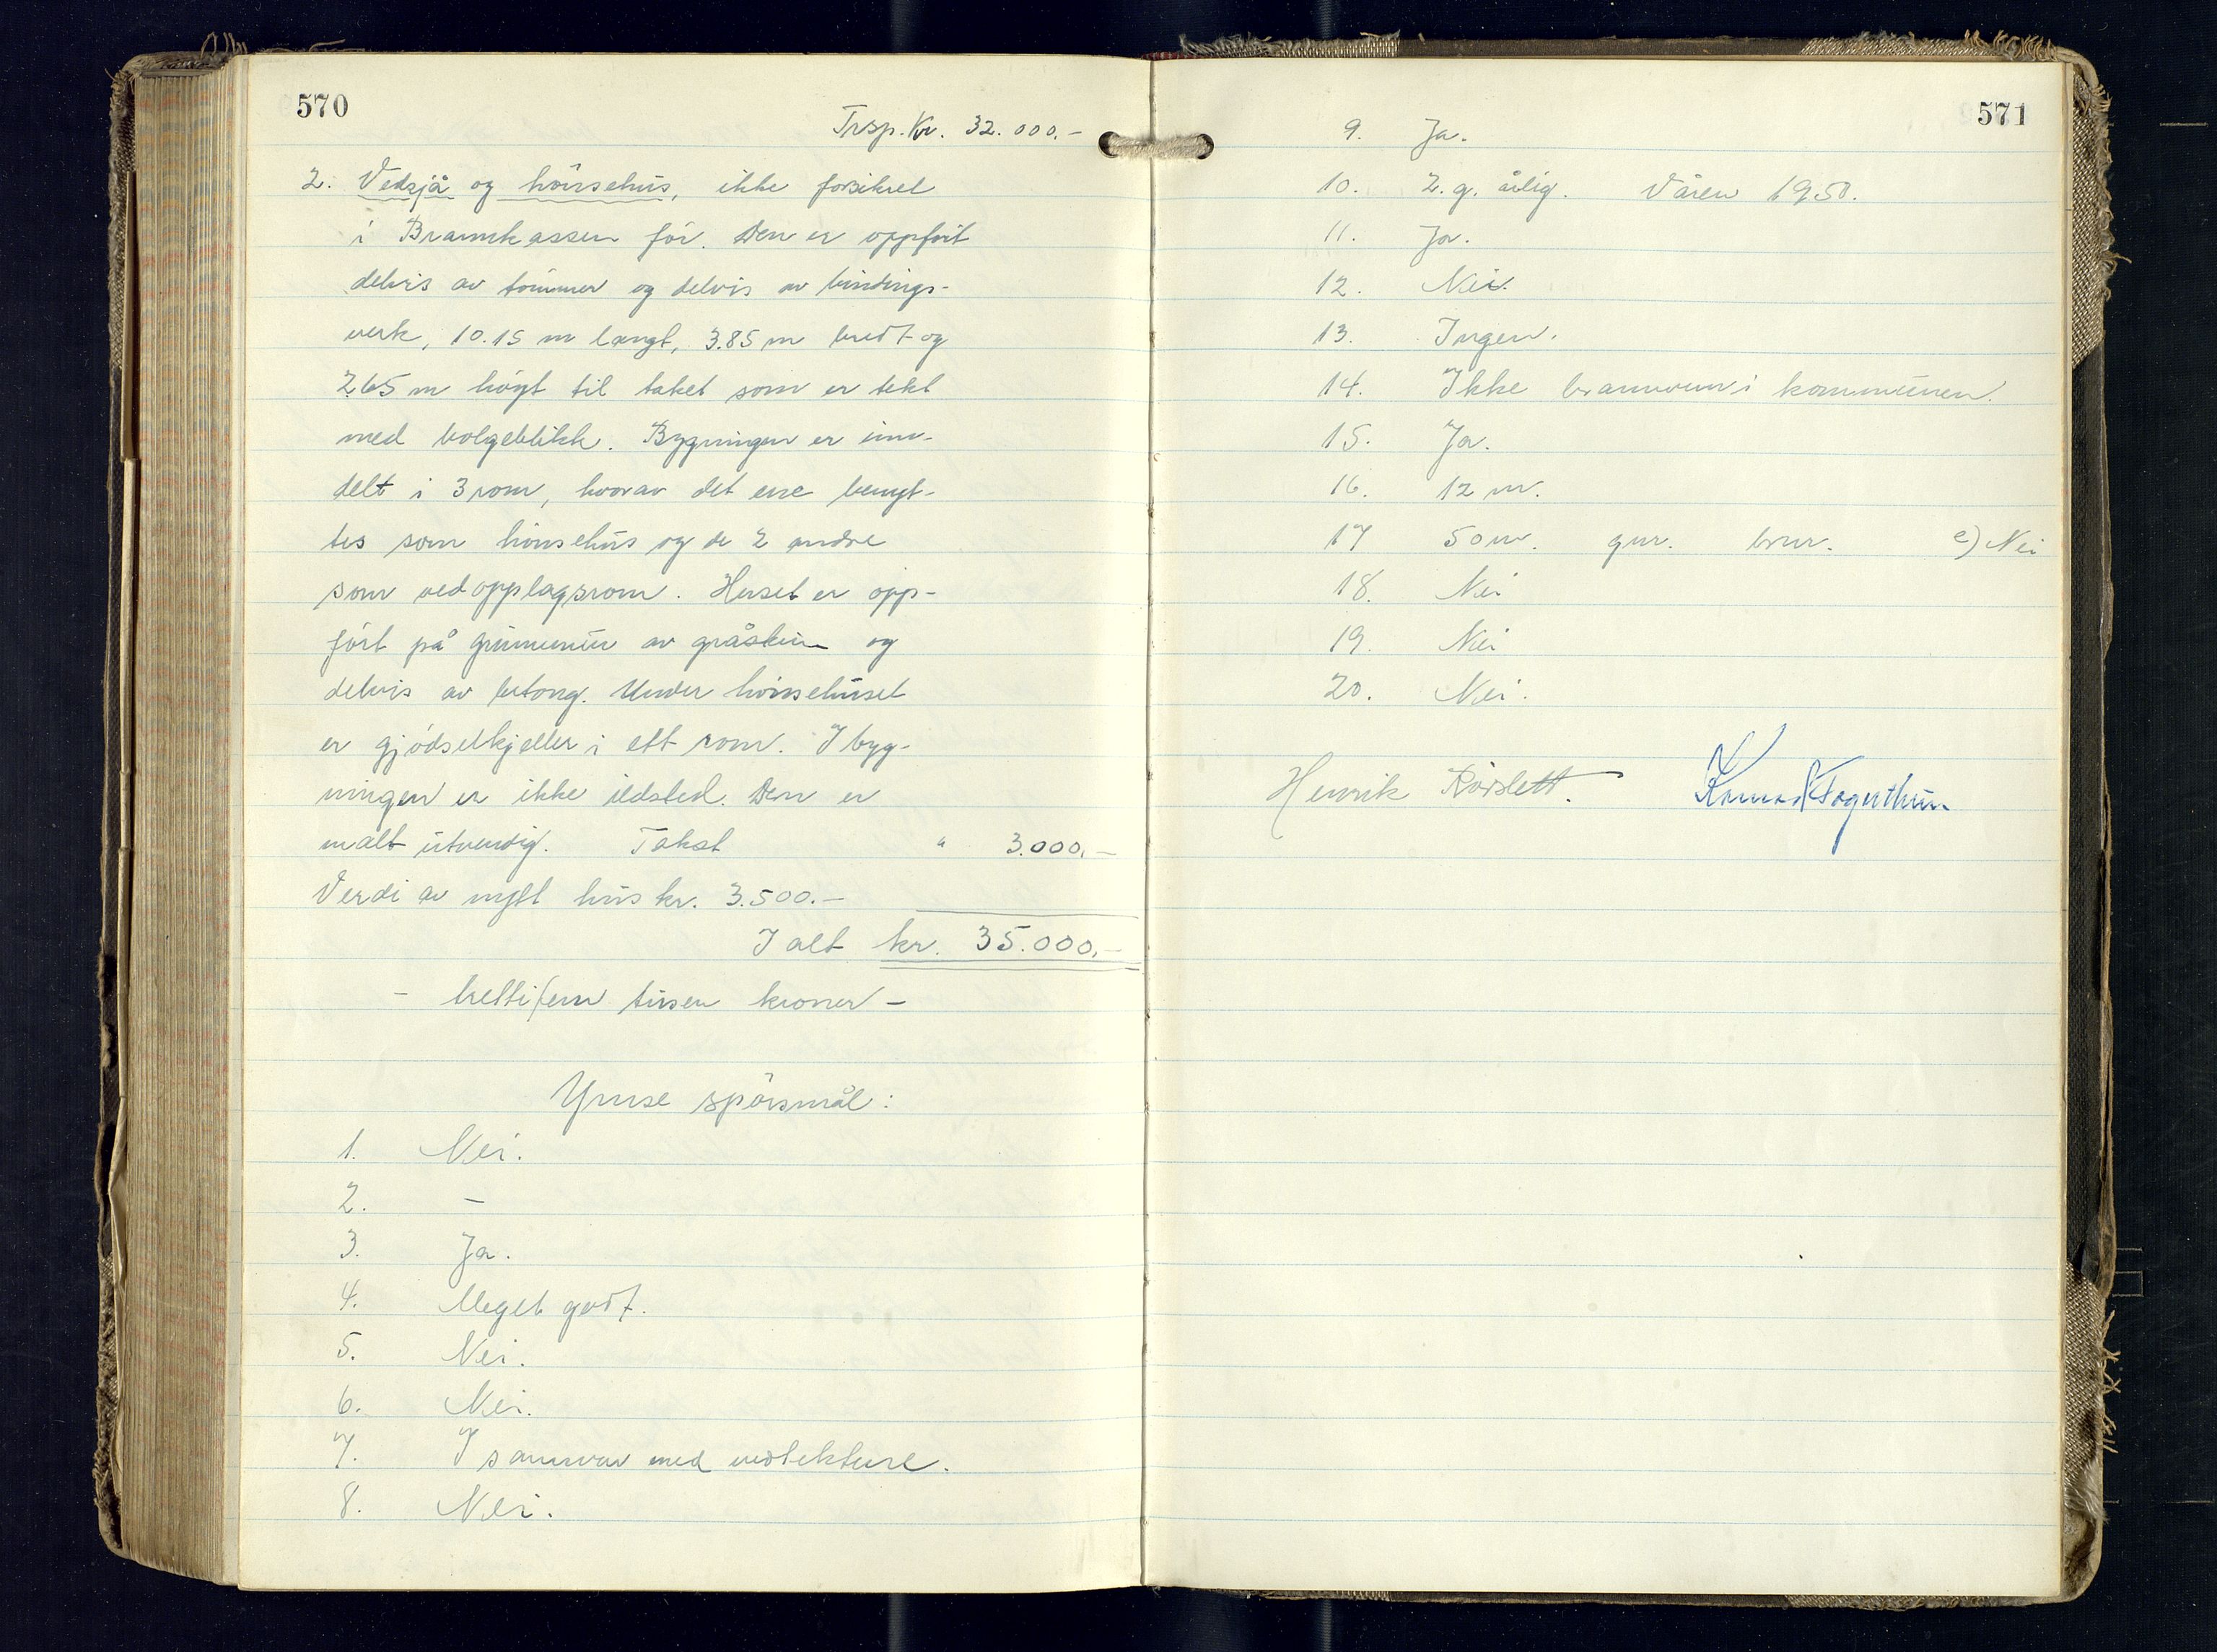 570
Trsp. Kr. 32.000.-
2. Vedsjå og hönsehus, ikke forsikret
i Brannkassen för. Den er oppfört
delvis av tömmer og delvis av bindings-
verk, 10.15 m langt, 3.85 m bredt og
2.65 m högt til taket som er tekt
med bölgeblikk. Bygningen er inn-
delt i 3 rom, hvorav det ene benyt-
tes som hönsehus og de 2 andre
som vedopplagsrom. Huset er opp-
fört på grunnmur av gråstein og
delvis av betong. Under hönsehuset
er gjödselkjeller i ett rom. I byg-
ningen er ikke ildsted. Den er
malt utvendig. Takst " 3.000.-
Verdi av nytt hus kr. 3.500.-
I alt kr. 35.000.-
- trettifem tusen kroner -
Ymse spörsmål:
1. Nei.
2. -
3. Ja.
4. Meget godt.
5. Nei.
6. Nei.
7. I samsvar med vedtektene.
8. Nei.
571
9. Ja.
10. 2. g. årlig. Våren 1950.
11. Ja.
12. Nei.
13. Ingen.
14. Ikke brannvern i kommunen.
15. Ja.
16. 12 m.
17 50 m. gnr. bnr. e) Nei
18. Nei
19. Nei
20. Nei.
Henrik Rörslett. Konrad Fagerthun